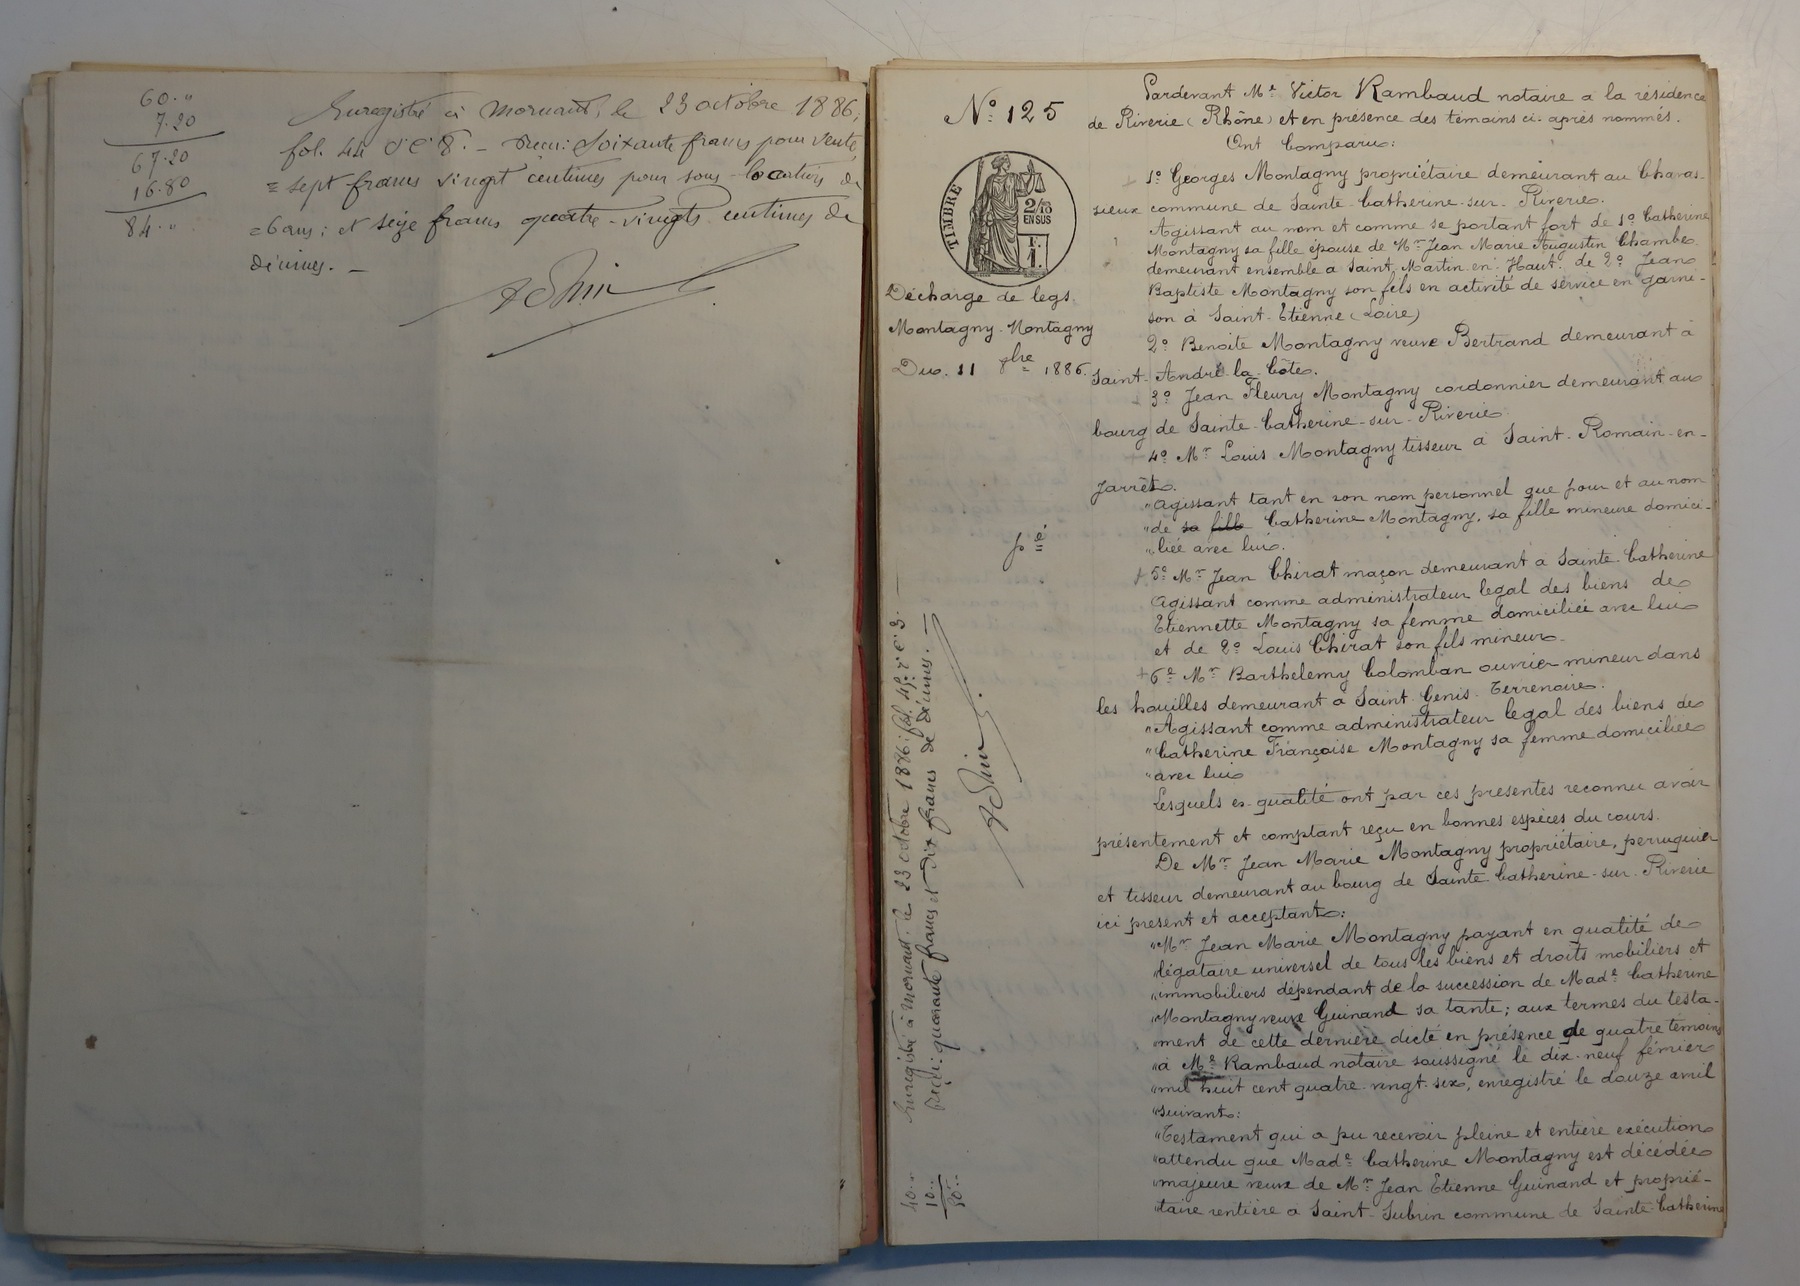 60 . "
7.20
67.20
16.80
84 . "
Enregistré à Mornant, le 23 octobre 1886,
fol. 44 v° c° 8. _ Reçu: Soixante francs pour vente,
= sept francs vingt centimes pour sous-location de
= 6 ans; et seize francs quatre-vingts centimes de
décimes. _
N° 125
TIMBRE
2/10
EN SUS
F.
1.
Décharge de legs
Montagny-Montagny
Du. 11 8bre 1886.
Enregistré à Mornant. le 23 octobre 1886: fol. 45. v° c° 3. _
Reçu: quarante francs et dix francs de décimes. _
40 . "
10 . "
50 . "
Pardevant Me Victor Rambaud notaire a la résidence
de Riverie (Rhône) et en présence des témoins ci-après nommés.
Ont Comparu:
1° Georges Montagny propriétaire demeurant au Charas-
sieux commune de Sainte-Catherine-sur-Riverie.
Agissant au nom et comme se portant fort de 1° Catherine
Montagny sa fille épouse de Mr Jean Marie Augustin Chambe
demeurant ensemble a Saint Martin-en-Haut. de 2° Jean
Baptiste Montagny son fils en activité de service en garni-
son à Saint-Etienne (Loire)
2° Benoite Montagny veuve Bertrand demeurant à
Saint-André-la-Côte.
3° Jean Fleury Montagny cordonnier demeurant au
bourg de Sainte-Catherine-sur-Riverie
4° Mr Louis Montagny tisseur à Saint-Romain-en-
Jarrêt.
"Agissant tant en son nom personnel que pour et au nom
"de sa fille Catherine Montagny, sa fille mineure domici-
"liée avec lui.
5° Mr Jean Chirat maçon demeurant a Sainte Catherine
Agissant comme administrateur légal des biens de
Etiennette Montagny sa femme domiciliée avec lui
et de 2° Louis Chirat son fils mineur.
6° Mr Barthelemy Colomban ouvrier mineur dans
les houilles demeurant a Saint-Genis-Terrenoire.
"Agissant comme administrateur légal des biens de
"Catherine Françoise Montagny sa femme domiciliée
"avec lui
Lesquels es-qualité ont par ces présentes reconnu avoir
présentement et comptant reçu en bonnes espèces du cours.
De Mr Jean Marie Montagny propriétaire, perruquier
et tisseur demeurant au bourg de Sainte Catherine-sur-Riverie
ici present et acceptant:
"Mr Jean Marie Montagny payant en qualité de
"légataire universel de tous les biens et droits mobiliers et
"immobiliers dépendant de la succession de Made Catherine
"Montagny veuve Guinand sa tante; aux termes du testa-
"ment de cette dernière dicté en présence de quatre témoins
"a Me Rambaud notaire soussigné le dix-neuf février
"mil huit cent quatre-vingt-six, enregistré le douze avril
"suivant:
"Testament qui a pu recevoir pleine et entière exécution
"attendu que Made Catherine Montagny est décédée
"majeure veuve de Mr Jean Etienne Guinand et proprié-
"taire rentière a Saint-Subrin commune de Sainte-Catherine